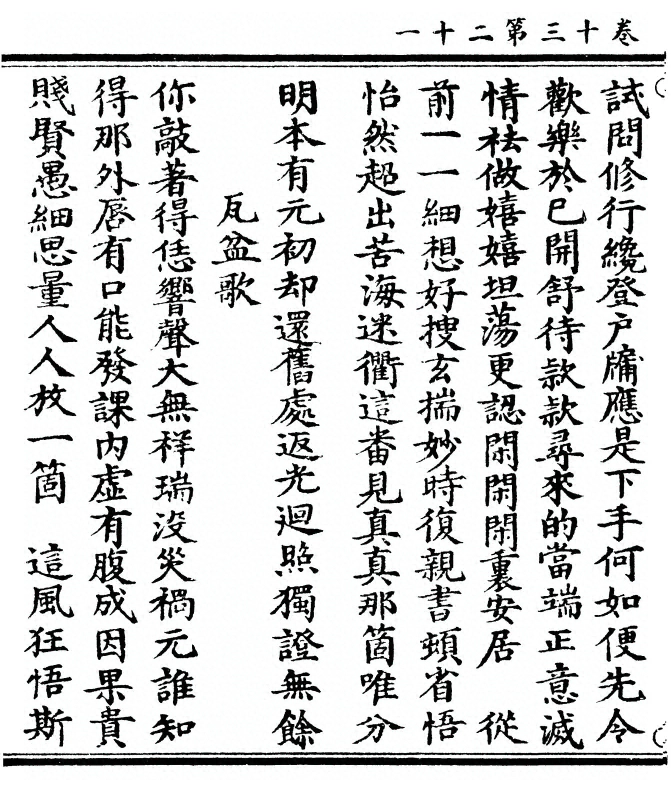 卷十三第二十一
試問修行纔登戶牖應是下手何如便先令
歡樂於巳開舒待款款尋來的當端正意滅
情袪做嬉嬉坦蕩更認閑閑閑裏安居　從
前一一細想好搜玄揣妙時復親書頓省悟
怡然超出苦海迷衢這番見真真那箇唯分
明本有元初却還舊處返光迴照獨證無餘
瓦盆歌
你敲著得恁響聲大無祥瑞没災禍元誰知
得那外唇有口能發課內虛有腹成因果貴
賤賢愚細思量人人放一箇　這風狂悟斯